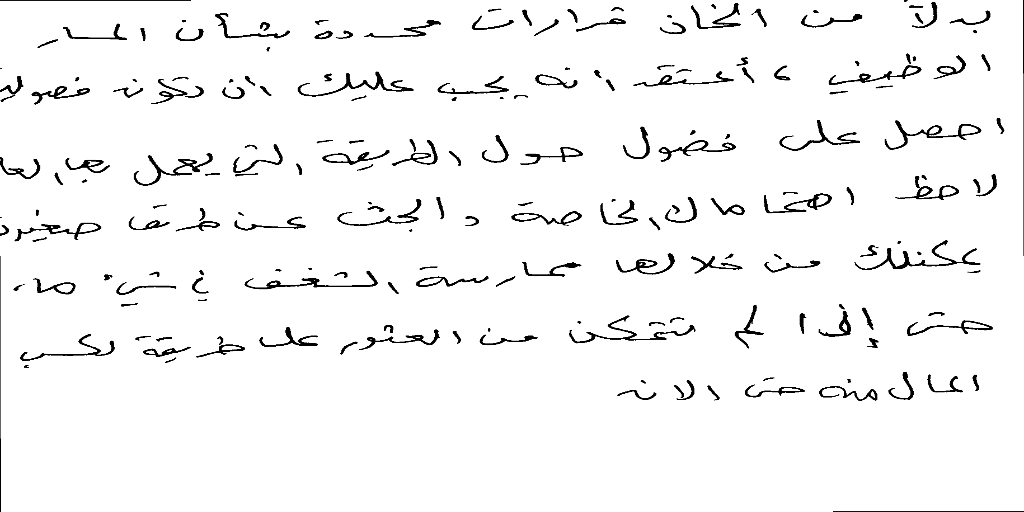 بدلاً من اتخاذ قرارات محددة بشأن المسار
الوظيفي ، أعتقد انه يجب عليك ان تكون فضوليا
احصل على فضول حول الطريقة التي يعمل بها العا
لاحظ اهتماماتك الخاصة والبحث عن طرق صغيرة
يمكنك من خلالها ممارسة الشغف في شيء ما.
حتى إذا لم تتمكن من العثور على طريقة لكسب
المال منه حتى الان